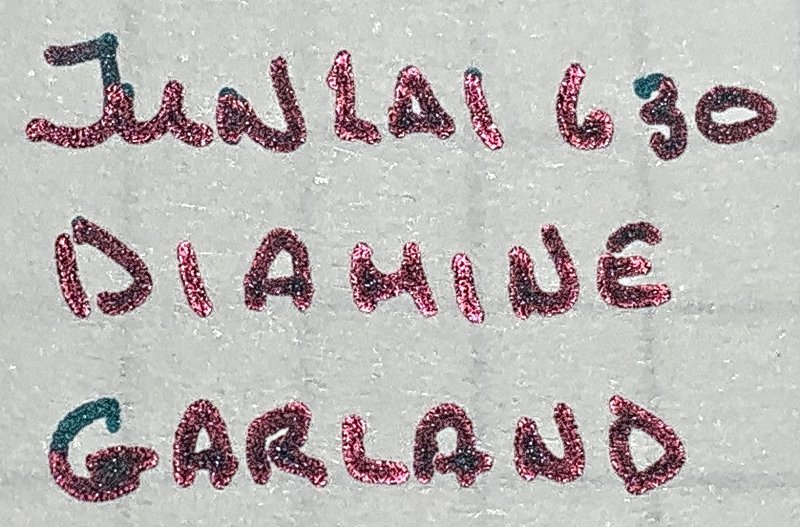 JUNLAI 630
DIAMINE
GARLAND